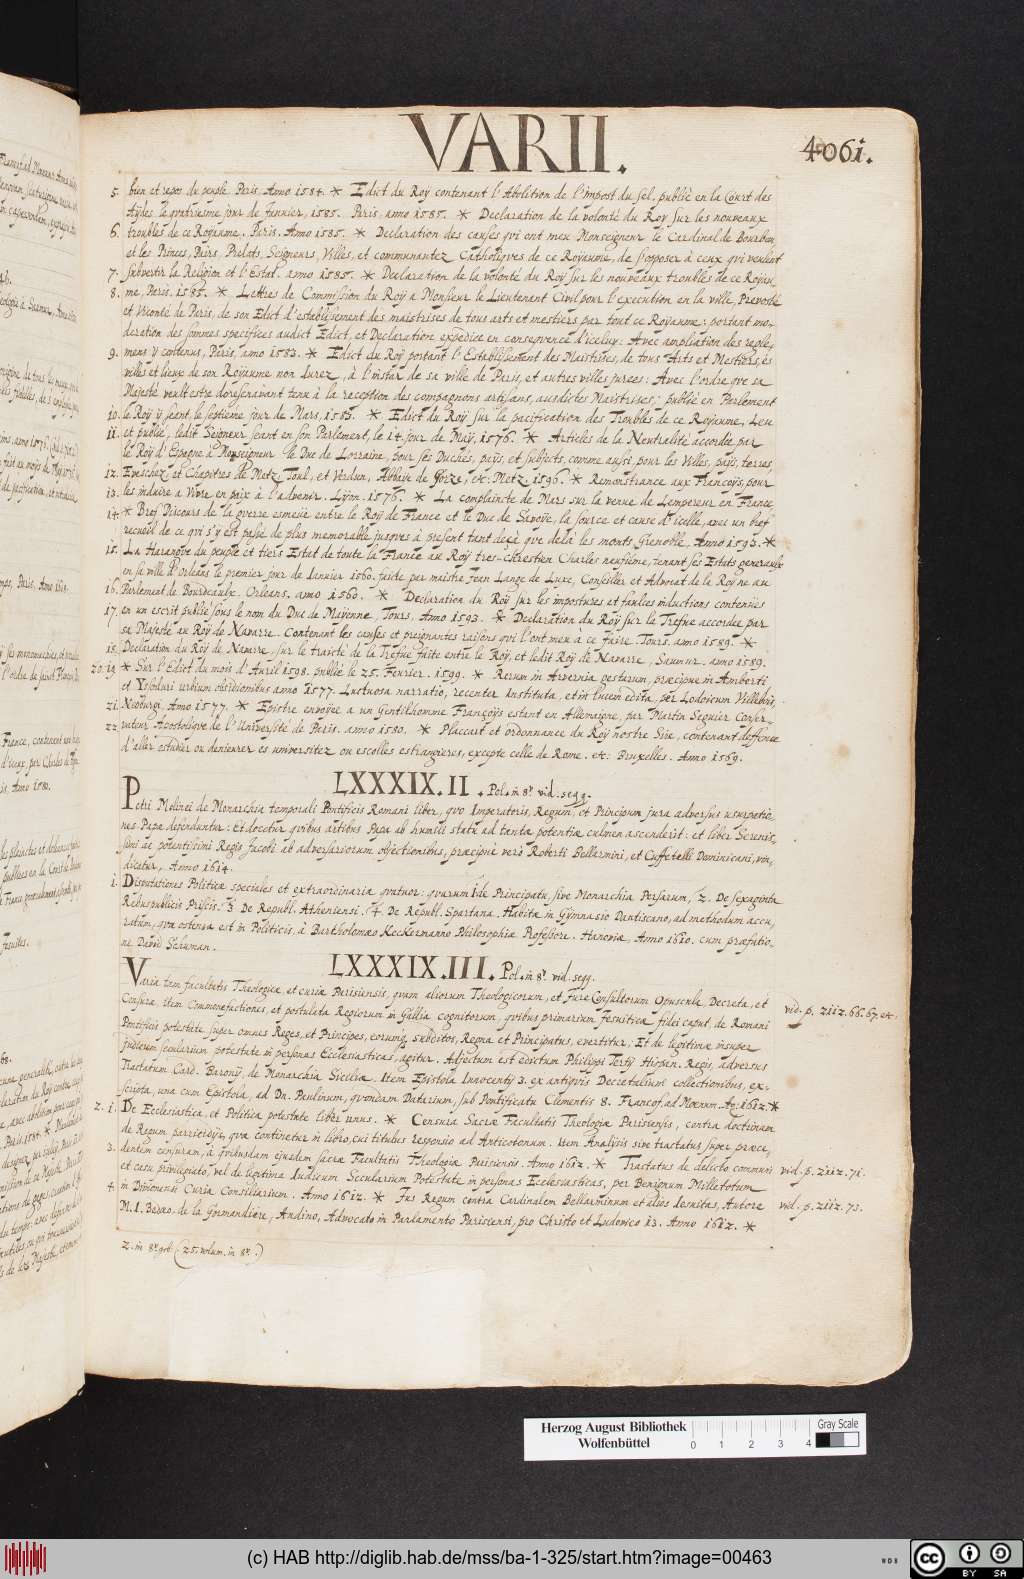 VARII.
4061.
5. bien et repos du peuple. Paris, Anno 1584. * Edict du Roy contenant l'Abolition de l'impost du sel, publié en la Court des
Aydes le quatriesme jour de Jenvier, 1585. Paris, anno 1585. * Declaration de la volonté du Roy sur les nouveaux
6. troubles de ce Royaume. Paris. Anno 1585. * Declaration des causes qui ont meu Monseigneur le Cardinal de Bourbon,
et les Princes, Pairs, Prelats, Seigneurs, Villes, et communautez Catholiques de ce Royaume, de s'opposer à ceux qui veulent
7. subvertir la Religion et l'Estat. anno 1585. * Declaration de la volonté du Roy sur les nouveaux troubles de ce Royau,
8. me, Paris. 1585. * Lettres de Commission du Roy a Monsieur le Lieutenent Civil pour l'execution en la ville, Prevosté
et Viconté de Paris, de son Edict d'establissement des maistrises de tous arts et mestiers par tout ce Royaume: portant mo,
deration des sommes specifiees audict Edict, et Declaration expediee en consequence d'iceluy: Avec ampliation des regle,
9. mens y contenus, Paris, anno 1582. * Edict du Roy portant l'Establissement des Maistrises, de tous Arts et Mestiers, es
villes et lieux de son Royaume non Iurez, à l'instar de sa ville de Paris, et autres villes jurees: Avec l'ordre que sa
Majesté veult estre doresnavant tenu à la reception des compagnons artisans, ausdictes Maistrises: publié en Parlement
10. le Roy y seant, le septieme jour de Mars, 1583. * Edict du Roy sur la pacification des Troubles de ce Royaume, Leu
11. et publié, ledit Seigneur seant en son Parlement, le 14. jour de May, 1576. * Articles de la Neutralité accordée par
le Roy d'Espagne à Monseigneur le Duc de Lorraine, pour ses Duchés, pays, et subjects, comme aussi, pour les Villes, pays, terres,
12. Eveschez et Chapitres de Metz, Toul, et Verdun, Abbaye de Gorze, etc. Metz. 1596. * Remonstrance aux Françoys, pour
13. les induire a Vivre en paix à l'advenir. Lyon. 1576. * La complaincte de Mars sur la venue de Lempereur en France
14. * Bref Discours de la guerre esmeüe entre le Roy de France et le Duc de Savoye, la source et cause d'icelle, avec un bref
recueil de ce qui s'y est passé de plus memorable jusques à present tant deçà que delà les monts Grenoble. Anno 1593. *
15. La Harangue du peuple et tiers Estat de toute la France au Roy tres-chrestien Charles neufieme, tenant ses Estats generaulx
en sa ville d'Orleans le premier jour de Ianvier 1560. faite per maistre Jean Lange de Luxe, Conseiller et Advocat de la Royne au
16. Parlement de Bourdeaulx. Orleans. anno 1560. * Declaration du Roy sur les impostures et faulces inductions contenües
17. en un escrit publié sous le nom du Duc de Mayenne, Tours, Anno 1593. * Declaration du Roy sur la Trefue accordee par
sa Majesté au Roy de Navarre. Contenant les causes et preignantes raisons qui l'ont meu a ce faire. Tours. anno 1589. *
18. Declaration du Roy de Navarre, sur le traicté de la Trefue faite entre le Roy, et ledit Roy de Navarre, Saumur, anno 1589.
20. 19 * Sur l'Edict du mois d'Avril 1598. publié le 25. Fevrier. 1599. * Rerum in Arvernia gestarum, præcipue in Amberti
et Yssoduri urbium obsidionibus anno 1577. Luctuosa narratio, recenter Instituta, et in lucem edita, per Lodoicum Villebois,
21. Neoburgi, Anno 1577. * Epistre envoyee a un Gentilhomme Françoys estant en Allemaigne, par Martin Seguier Conser,
22 vateur Apostolique de l'Université de Paris. anno 1580. * Placcart et ordonnance du Roy nostre Sire, contenant deffence
d'aller estudier ou demeurer es universitez ou escolles estrangieres, excepte celle de Rome. etc. Bruxelles. Anno 1569.
LXXXIX.II. Pol. in 8º. vid. seqq.
Petri Molinei de Monarchia temporali Pontificis Romani liber, quo Imperatoris, Regum, et Principum jura adversus usurpatio
nes Papæ defenduntur: Et docetur quibus artibus Papa ab humili statu ad tantæ potentiæ culmen ascenderit: et liber Serenis,
simi ac potentissimi Regis Jacobi ab adversariorum objectionibus, præcipuè verò Roberti Bellarmini, et Cuffetelli Dominicani, vin,
dicatur, Anno 1614.
1. Disputationes Politicæ speciales et extraordinariæ quatuor: quarum I de Principatu, sive Monarchia Persarum, 2. De sexaginta
Rebuspublicis Priscis. 3 De Republ. Atheniensi. 4. De Republ. Spartana. Habitæ in Gymnasio Dantiscano, ad methodum accu,
ratam, quæ ostensa est in Politicis, à Bartholomæo Keckermanno Philosophiæ Professore. Hanoviæ, Anno 1610. cum præfatio,
ne David Schuman.
LXXXIX.III. Pol. in 8º. vid. seqq.
Varia tam facultatis Theologicæ, et curiæ Parisiensis, quam aliorum Theologicorum, et Jure Consultorum Opuscula, Decreta, et
Censuræ, item Commonefactiones, et postulata Regiorum in Gallia cognitorum, quibus primarium Jesuiticæ fidei caput, de Romani
vid. p. 2112. 66. 67. etc.
Pontificis potestate super omnes Reges, et Principes, eorumq. subditos, Regna et Principatus, evertitur. Et de legitimæ insuper
Judicum secularium potestate in personas Ecclesiasticas, agitur. Adjectum est edictum Philippi Tertij Hispan. Regis, adversus
Tractatum Card. Baronij, de Monarchia Siciliæ. Item Epistola Innocentij 3. ex antiquis Decretalium collectionibus, ex,
scripta, una cum Epistola, ad Dn. Paulinum, quondam Datarium, sub Pontificatu Clementis 8. Francof. ad Moenum. Aº. 1612. *
2. 1. De Ecclesiastica, et Politica potestate liber unus. * Censura Sacræ Facultatis Theologiæ Parisiensis, contra doctrinam
de Regum parricidijs, quæ continetur in libro, cui titulus responsio ad Anticotonum. Item Analysis sive tractatus super præce,
3. dentem censuram, à quibusdam ejusdem sacræ Facultatis Theologiæ Parisiensis. Anno 1612. * Tractatus de delicto communi
vid. p. 2112. 71.
et casu privilegiato, vel de legitima Iudicum Secularium Potestate in personas Ecclesiasticas, per Benignum Milletotum
4. in Divionensi Curia Consiliarium. Anno 1612. * Jus Regum contra Cardinalem Bellarminum et alios Iesuitas, Autore
vid. p. 2112. 73.
M. I. Bedæo de la Gormandiere, Andino, Advocato in Parlamento Parisiensi, pro Christo et Ludovico 13. Anno 1612. *
2. in 8º. got. (25. volum. in 8º.)
Herzog August Bibliothek
Wolfenbüttel
Gray Scale
0 1 2 3 4
(c) HAB http://diglib.hab.de/mss/ba-1-325/start.htm?image=00463
WDB
cc BY SA